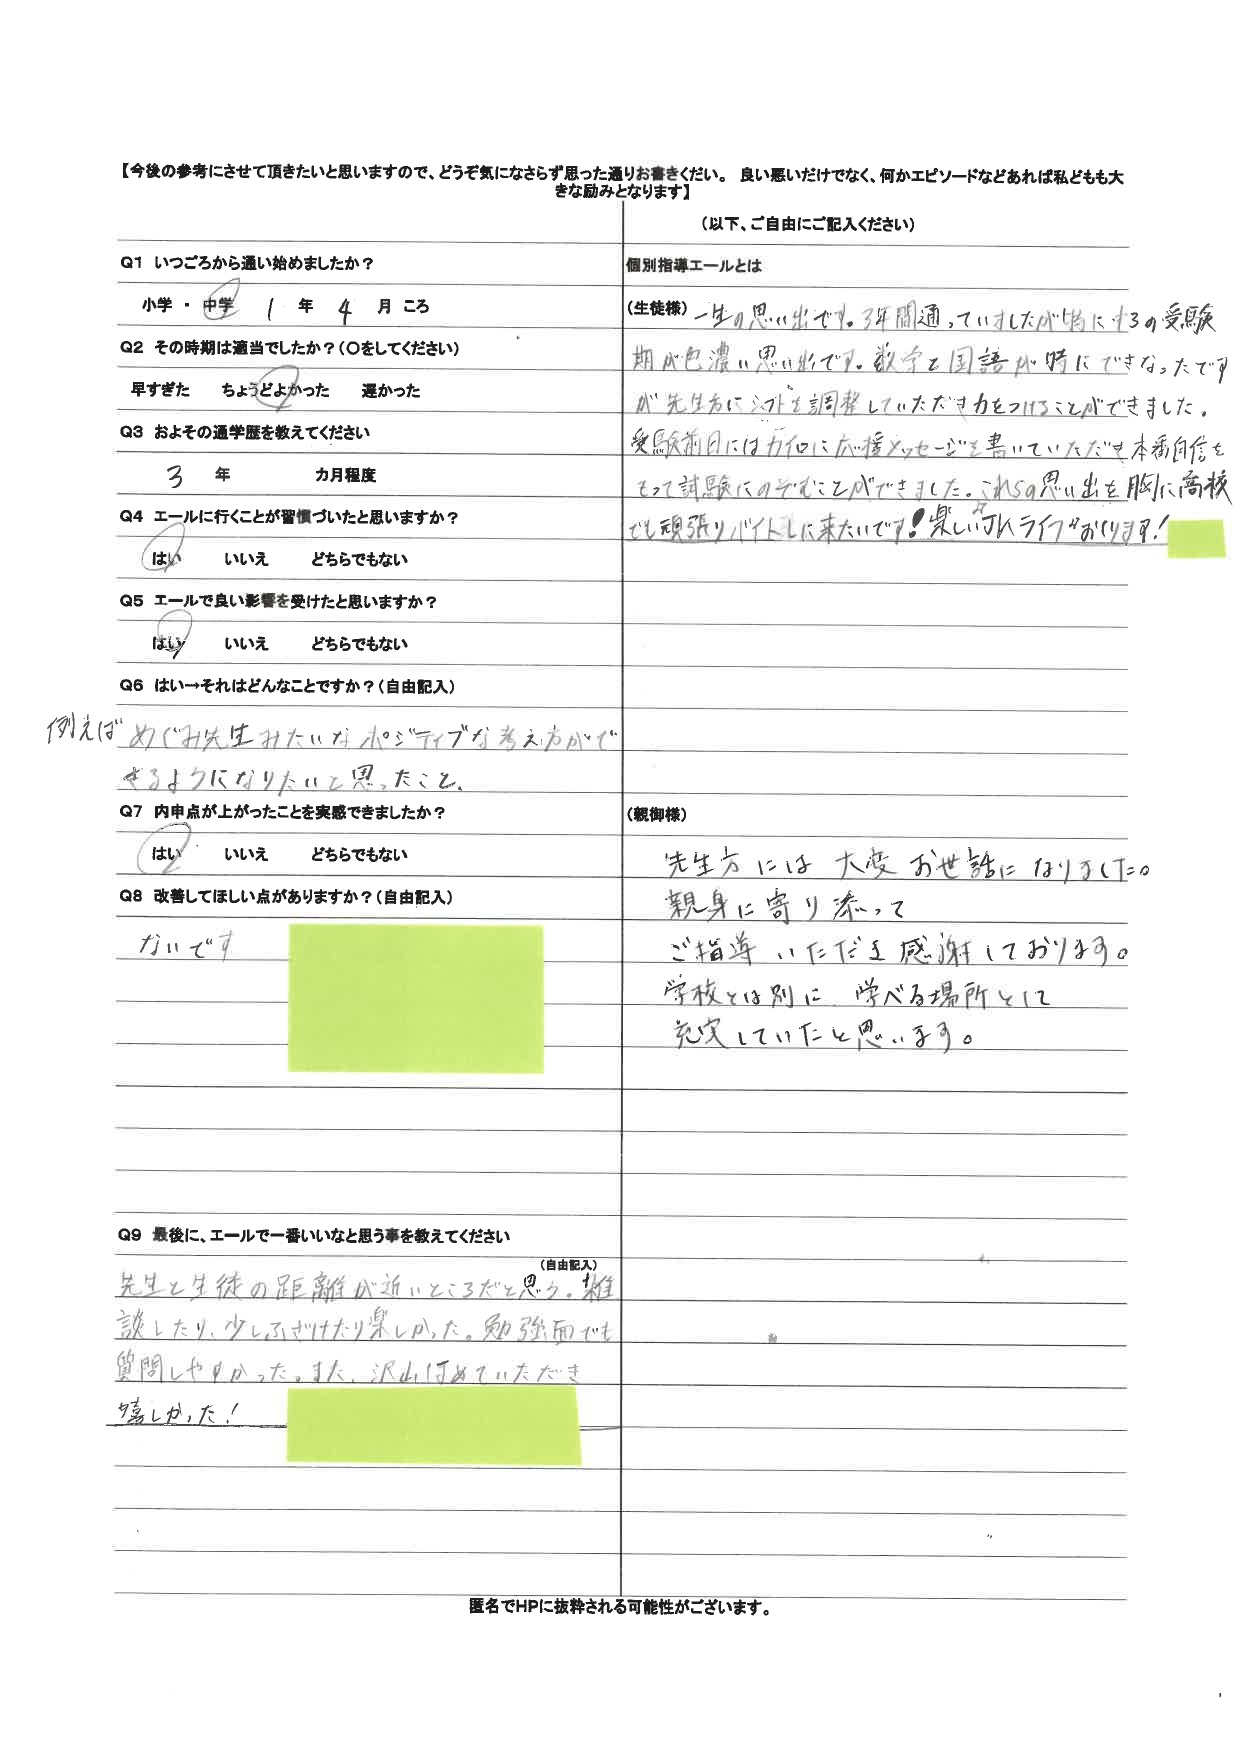 【今後の参考にさせて頂きたいと思いますので、どうぞ気になさらず思った通りお書きくだい。 良い悪いだけでなく、何かエピソードなどあれば私どもも大
きな励みとなります】
(以下、ご自由にご記入ください)
Q1 いつごろから通い始めましたか?
小学 ・ 中学 1 年 4 月 ころ
Q2 その時期は適当でしたか?(○をしてください)
早すぎた ちょうどよかった 遅かった
Q3 およその通学歴を教えてください
3 年 カ月程度
Q4 エールに行くことが習慣づいたと思いますか?
はい いいえ どちらでもない
Q5 エールで良い影響を受けたと思いますか?
はい いいえ どちらでもない
Q6 はい→それはどんなことですか?(自由記入)
例えば めぐみ先生みたいなポジティブな考え方がで
きるようになりたいと思ったこと。
Q7 内申点が上がったことを実感できましたか?
はい いいえ どちらでもない
Q8 改善してほしい点がありますか?(自由記入)
ないです
Q9 最後に、エールで一番いいなと思う事を教えてください
(自由記入)
先生と生徒の距離が近いところだと思う。雑
談したり、少しふざけたり楽しかった。勉強面でも
質問しやすかった。また、沢山ほめていただき
嬉しかった!
個別指導エールとは
(生徒様) 一生の思い出です。3年間通っていましたが特に中3の受験
期が色濃い思い出です。数学と国語が特にできなったです
が先生方にシフトを調整していただき力をつけることができました。
受験前日にはカイロに応援メッセージを書いていただき本番自信を
もって試験にのぞむことができました。これらの思い出を胸に高校
でも頑張りバイトしに来たいです!楽しいJKライフおくります!
(親御様)
先生方には 大変 お世話に なりました。
親身に寄り添って
ご指導 いただき 感謝しております。
学校とは別に 学べる場所として
充実していたと思います。
匿名でHPに抜粋される可能性がございます。